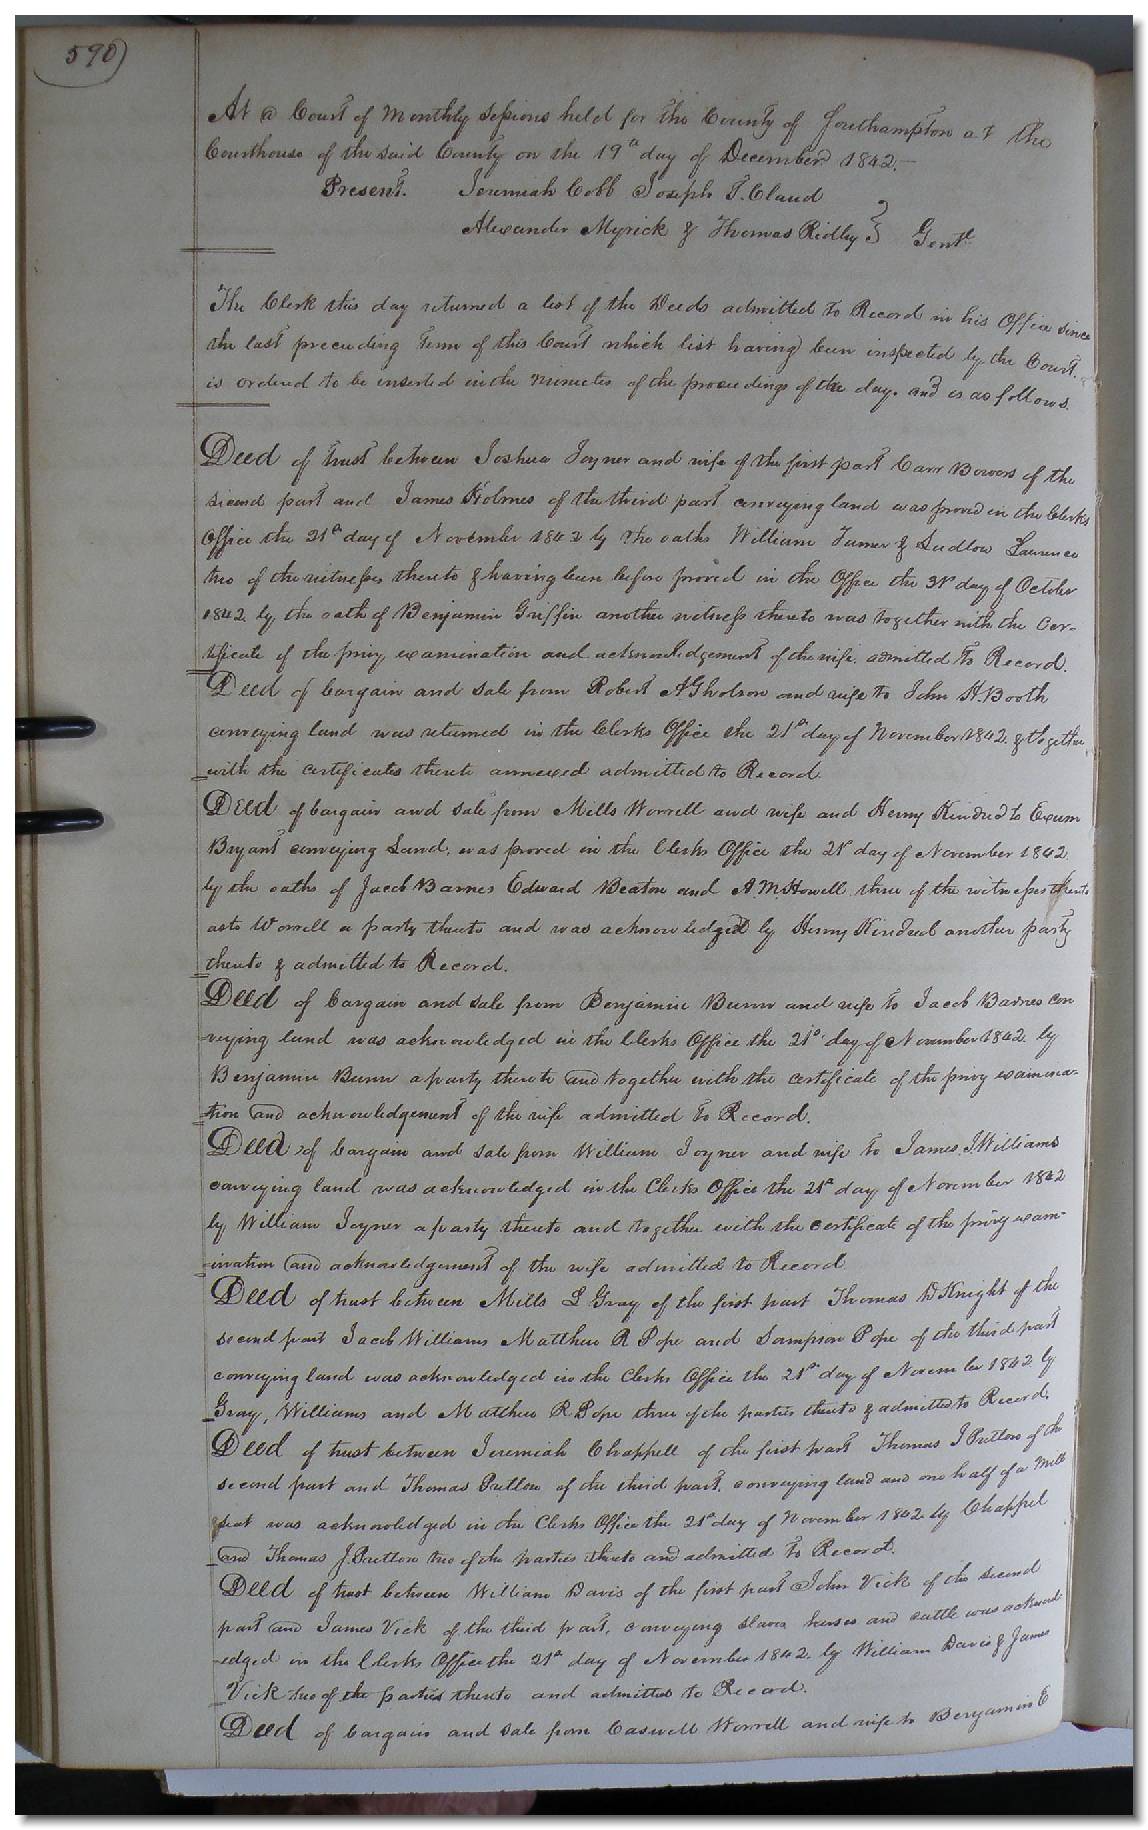 590
At a Court of Monthly Sessions held for the County of Southampton at the
Courthouse of the said County on the 19th day of December 1842.
Present. Jeremiah Cobb Joseph T. Claud
Alexander Myrick & Thomas Ridley } Gentl
The Clerk this day returned a list of the Deeds admitted to Record in his Office since
the last preceeding term of this Court which list having been inspected by the Court.
is ordered to be inserted in the minutes of the proceedings of the day. and is as follows.
Deed of trust between Joshua Joyner and wife of the first part Carr Bowers of the
second part and James Holmes of the third part conveying land was proved in the Clerks
Office the 21st day of November 1842 by the oaths William Turner & Ludlow Laurence
two of the witnesses thereto & having been before proved in the Office the 31st day of October
1842. by the oath of Benjamin Griffin another witness thereto was together with the Cer-
tificate of the privy examination and acknowledgement of the wife. admitted to Record.
Deed of bargain and sale from Robert A Gholson and wife to John H. Booth
conveying land was returned in the Clerks Office the 21st day of November 1842. & together
with the certificates thereto annexed admitted to Record.
Deed of bargain and sale from Mills Worrell and wife and Henry Kindred to Exum
Bryant conveying Land. was proved in the Clerks Office the 21st day of November 1842
by the oaths of Jacob Barnes Edward Beaton and A. M. Howell three of the witnesses thereto
as to Worrell a party thereto and was acknowledged by Henry Kindred another party
thereto & admitted to Record.
Deed of bargain and sale from Benjamin Bunn and wife to Jacob Barnes con
veying land was acknowledged in the Clerks Office the 21st day of November 1842 by
Benjamin Bunn a party thereto and together with the certificate of the privy examina-
tion and acknowledgement of the wife admitted to Record.
Deed of bargain and sale from William Joyner and wife to James J. Williams
conveying land was acknowledged in the Clerks Office the 21st day of November 1842
by William Joyner a party thereto and together with the certificate of the privy exam-
ination and acknowledgement of the wife admitted to Record
Deed of trust between Mills L Gray of the first part Thomas D Knight of the
second part Jacob Williams Matthew R Pope and Sampson Pope of the third part
conveying land was acknowledged in the Clerks Office the 21st day of November 1842 by
Gray, Williams and Matthew R Pope three of the parties thereto & admitted to Record.
Deed of trust between Jeremiah Chappell of the first part Thomas J Pretlow of the
second part and Thomas Pretlow of the third part. conveying land and one half of a Mill
seat was acknowledged in the Clerks Office the 21st day of November 1842 by Chappel
and Thomas J. Pretlow two of the parties thereto and admitted to Record.
Deed of trust between William Davis of the first part John Vick of the second
part and James Vick of the third part. conveying slaves horses and cattle was acknowl
edged in the Clerks Office the 21st day of November 1842. by William Davis & James
Vick two of the parties thereto and admitted to Record.
Deed of bargain and sale from Caswell Worrell and wife to Benjamin E